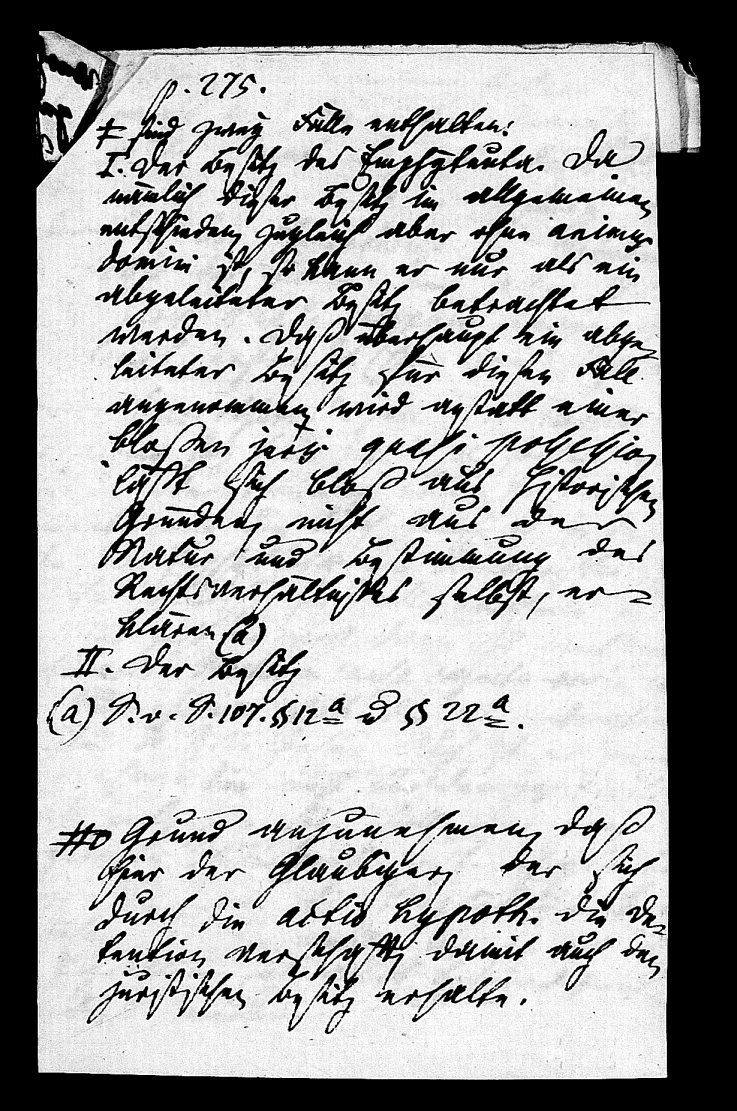 p. 275.
≠ sind zwey Fälle enthalten:
I. Der Besitz des Emphyteuta. Da
nämlich dieser Besitz im allgemeinen
entschieden, zugleich aber ohne animus
domini ist, so kann er nur als ein
abgeleiteter Besitz betrachtet
werden. Daß überhaupt ein abge-
leiteter Besitz für diesen Fall
angenommen wird anstatt einer
bloßen juris quasi possessio,
läßt sich bloß aus historischen
Gründen, nicht aus der
Natur und Bestimmung des
Rechtsverhältnisses selbst, er-
klären (a)
II. Der Besitz
(a) S. o. S. 107. §12a u §22a.
Grund anzunehmen, daß
hier der Gläubiger, der sich
durch die actio hypoth. die De-
tention verschafft, damit auch den
juristischen Besitz erhalte.